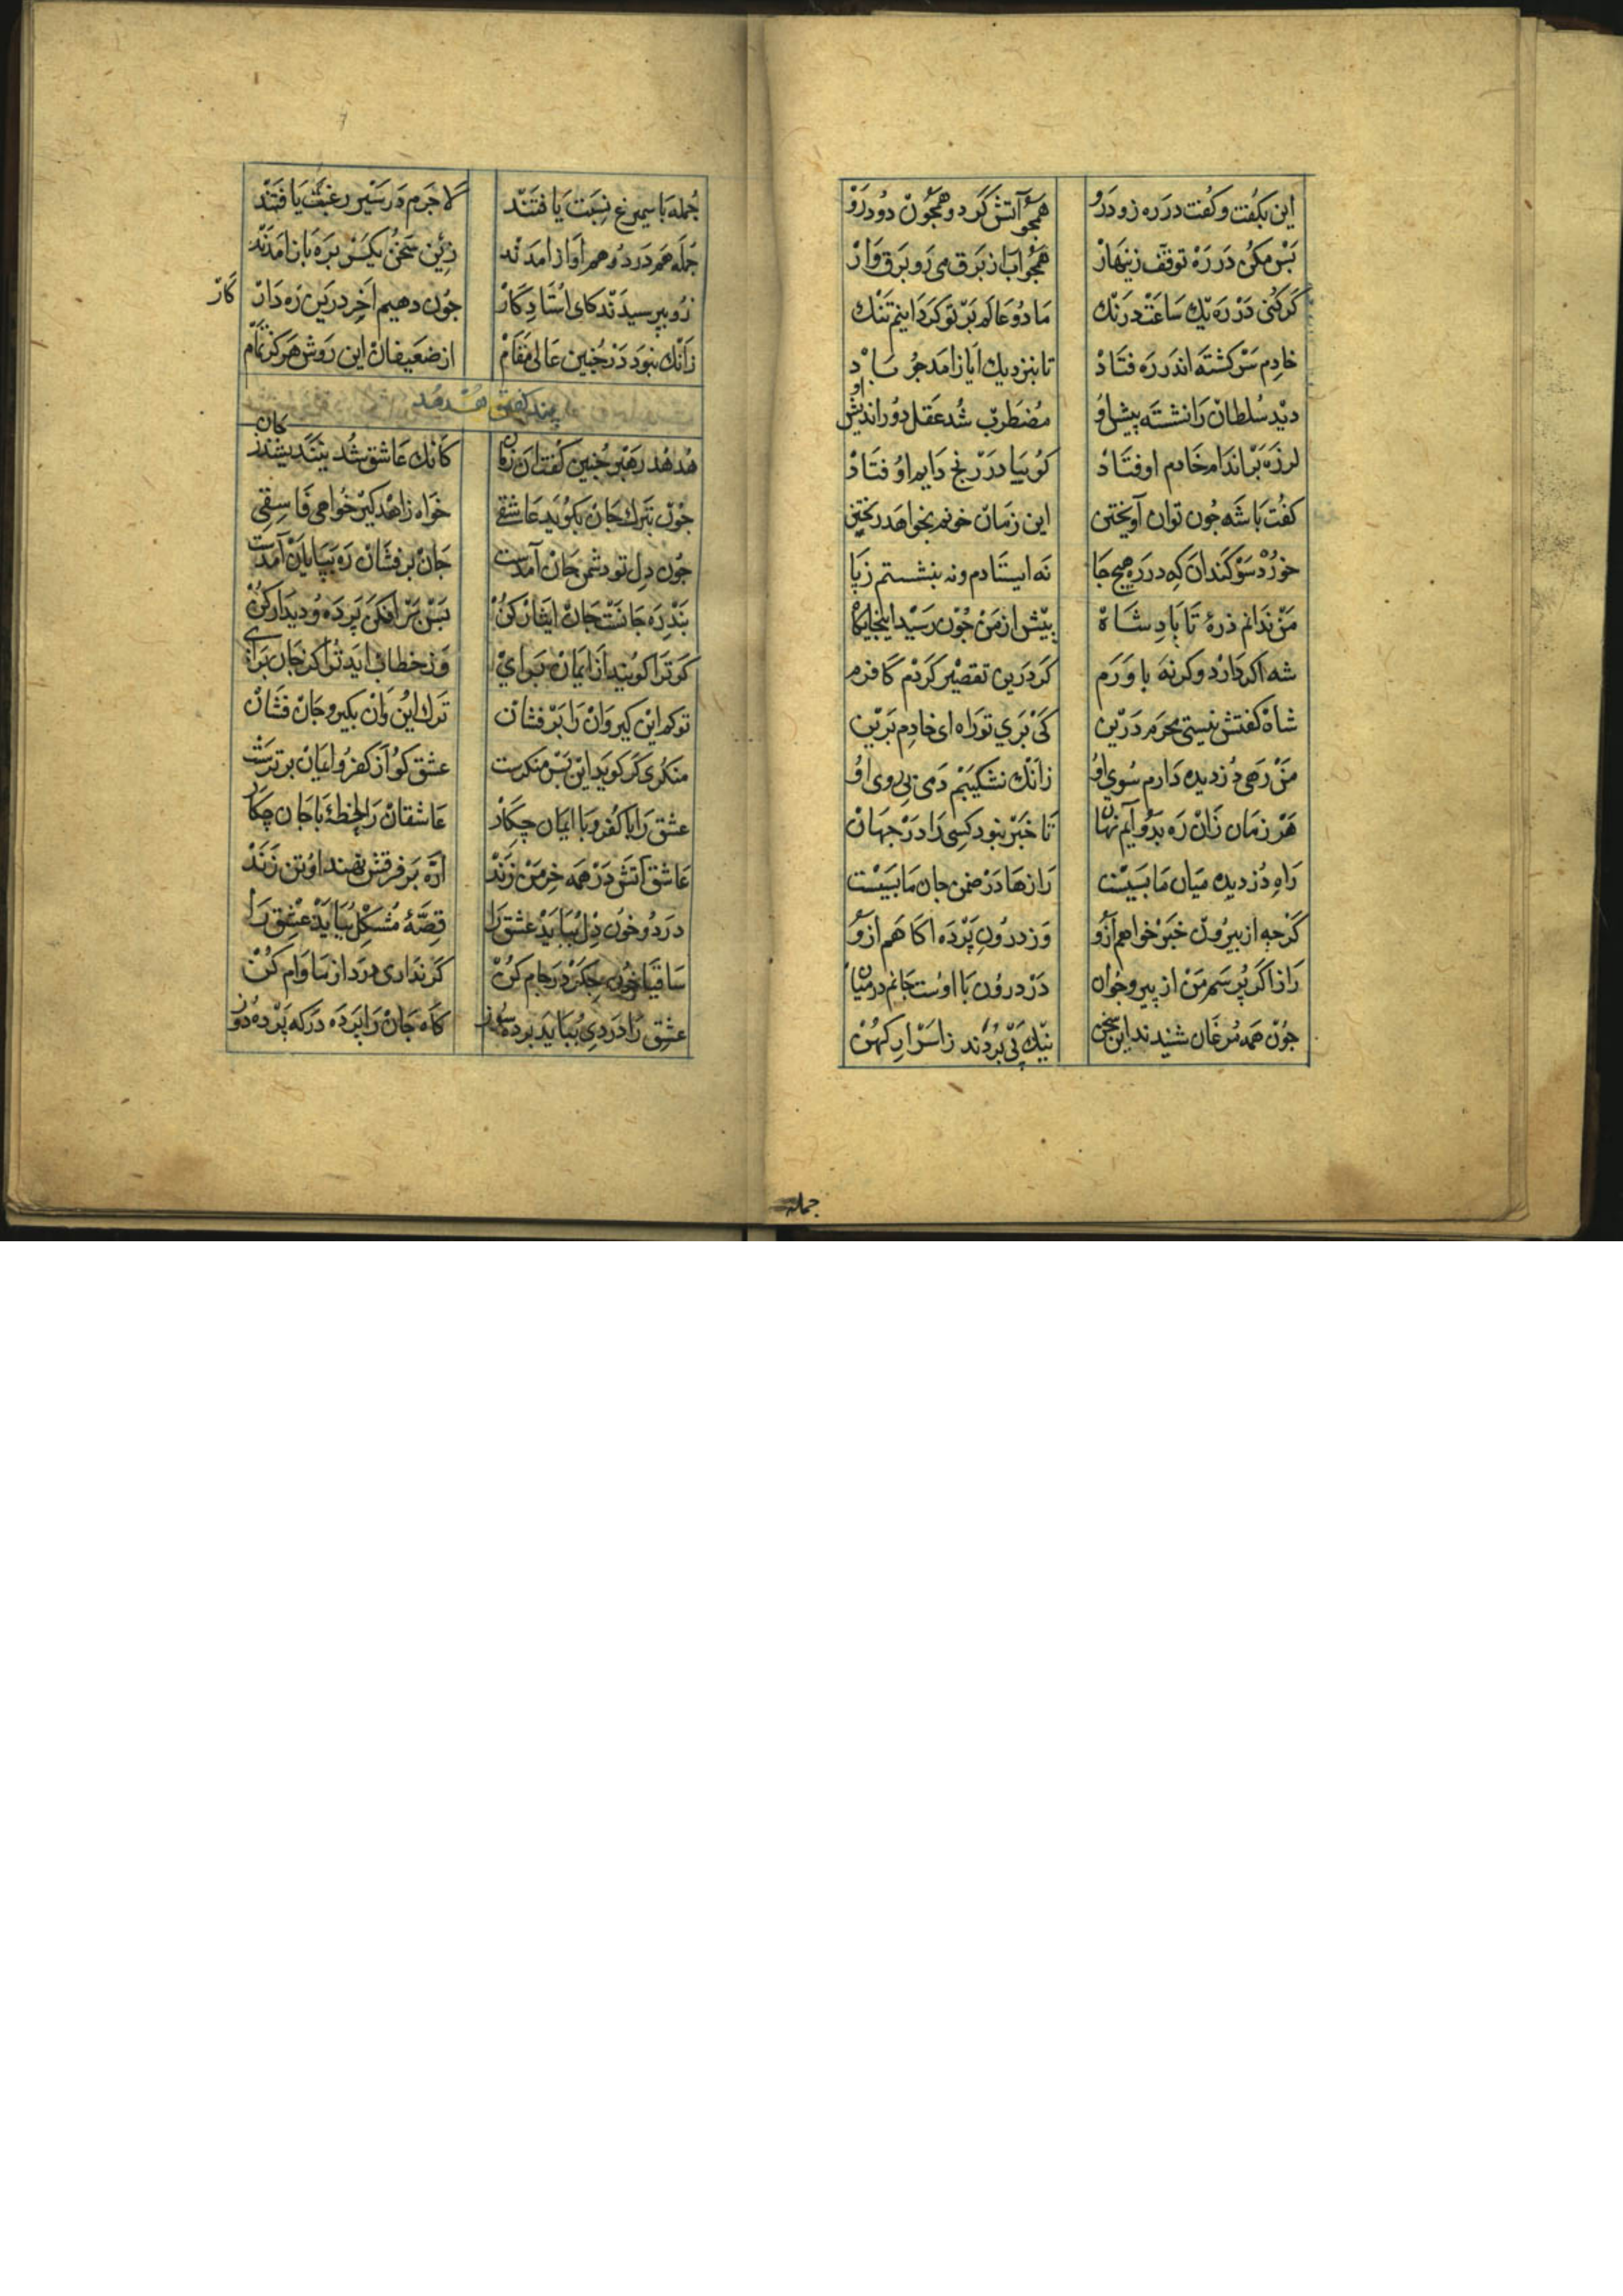 این بکفت و کفت در ره زود رو همچو آتش کرد و همچون دود رو
بس مکن در ره توقف زینهار همچو آب از برق می رو برق وار
کر کنی در ره یک ساعت درنک ما دو عالم بر تو کردانیم تنک
خادم سرکشته اندر ره فتاد تا بنزدیک ایاز امد جو باد
دید سلطان را نشسته پیش او مضطرب شد عقل دور اندیش او
لرزه بر اندام خادم اوفتاد کوییا در رنج دایم اوفتاد
کفت با شه جون توان آویختن این زمان خونم بخواهد ریختن
خورد سوکندان که در ره هیج جا نه ایستادم ونه بنشستم ز پا
من ندانم ذرۀ تا بادشاه بیش از من جون رسید اینجایکاه
شه اکر دارد وکر نه باورم کر درین تقصیر کردم کافرم
شاه کفتش نیستی محرم درین کی بری تو راه ای خادم برین
من رهی دزدیده دارم سوی او زانک نشکیبم دمی بی روی او
هر زمان زان ره بدو آیم نهان تا خبر نبود کسی را در جهان
راه دزدیده میان ما بسیست رازها در ضمن جان ما بسیست
کرجه از بیرون خبر خواهم ازو وز درون پرده اکاهم ازو
راز اکر پرسم من از پیر و جوان در درون با اوست جانم در میان
جون همه مرغان شنیدند این سخن نیک پی بردند ز اسرار کهن
جمله
جمله با سیمرغ نسبت یافتند لا جرم در سیر رغبت یافتند
جمله هم درد و هم اواز امدند زین سخن یکسر بره باز امدند
زو بپرسیدند کای استاد کار جون دهیم آخر درین ره داد کار
زانک نبود در جنین عالی مقام از ضعیفان این روش هرکز تمام
پند کفتن هدهد
هدهد رهبر جنین کفت ان زمان کانک عاشق شد نیندیشد ز جان
جون بترک جان بکوید عاشقی خواه زاهد کیر خواهی فاسقی
جون دل تو دشمن جان آمدست جان برفشان ره بپایان آمدست
بند ره جانست جان ایثار کن بس بر افکن پرده و دیدار کن
کر ترا کویند از ایمان برای ور خطاب اید ترا کز جان برای
تو کم این کیر وان را بر فشان ترک این وان بکیر و جان فشان
منکری کر کوید این بس منکرست عشق کو از کفر و ایمان برترست
عشق را با کفر و با ایمان جکار عاشقان را لحظۀ با جان چکار
عاشق آتش در همه خرمن زند اره بر فرقش نهند او تن زند
درد و خون دل بباید عشق را قصۀ مشکل بباید عشق را
ساقیا خون جکر در جام کن کر نداری درد از ما وام کن
عشق را دردی بباید پرده سوز کاه جان را پرده در که پرده دوز